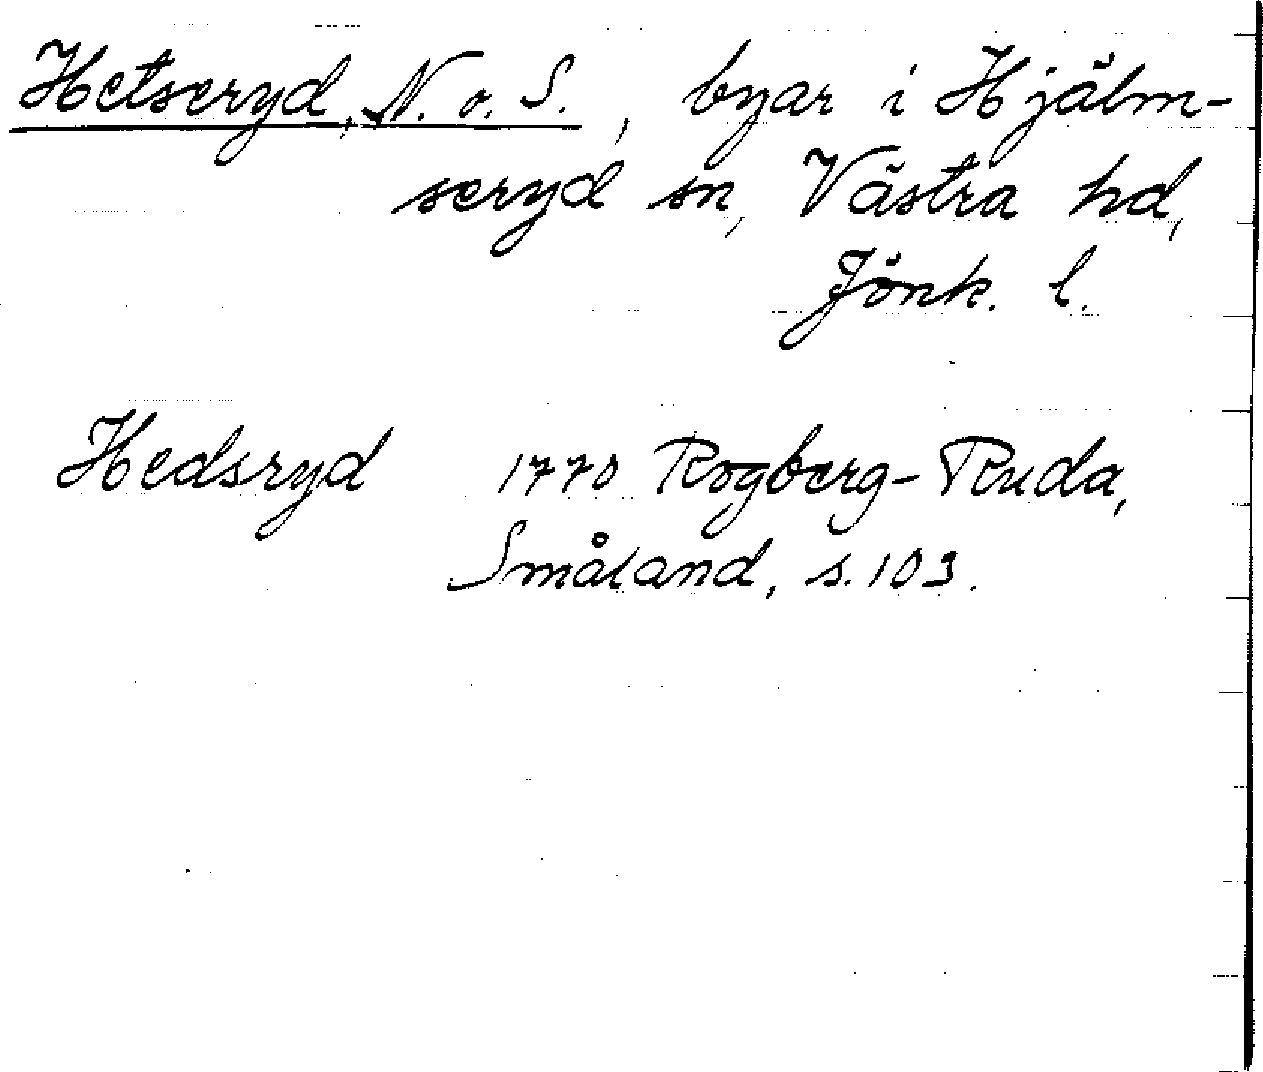 Hetseryd, N. o. S., byar i Hjälm-
seryd sn, Västra hd,
Jönk. l.
Hedsryd 1770 Rogberg-Ruda,
Småland, s. 103.